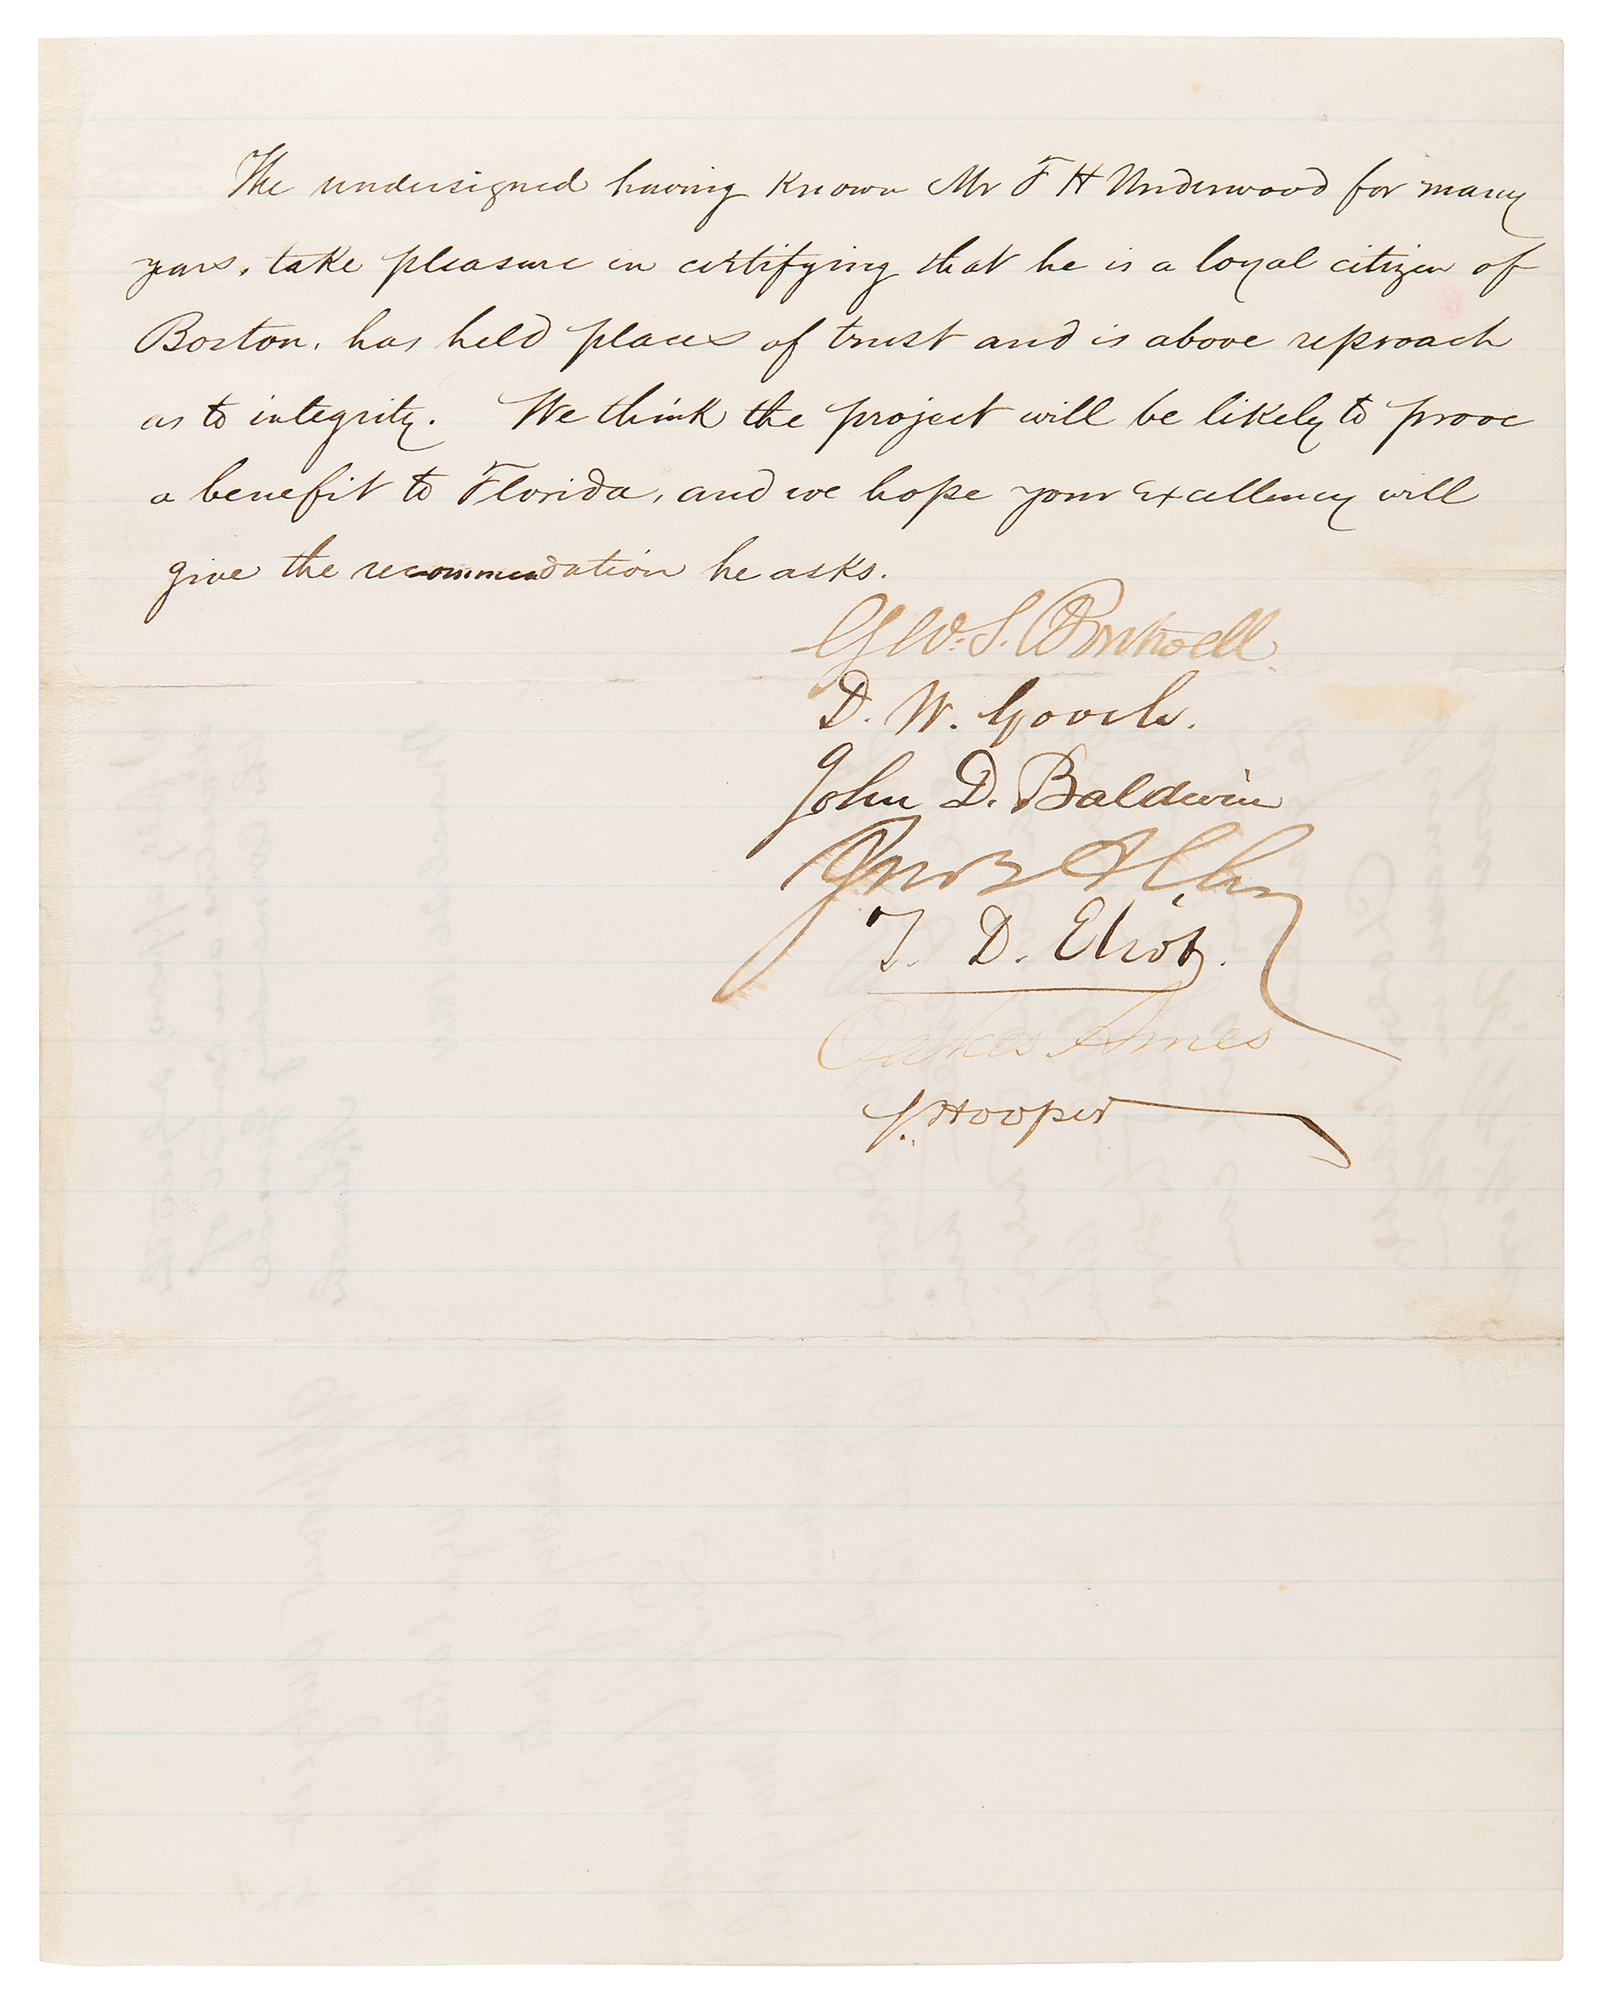 The undersigned having known Mr F H Underwood for many
years, take pleasure in certifying that he is a loyal citizen of
Boston, has held places of trust and is above reproach
as to integrity. We think the project will be likely to prove
a benefit to Florida, and we hope your Excellency will
give the recommendation he asks.
Geo. S. Boutwell
D. W. Gooch.
John D. Baldwin
Jno B Alley
T. D. Eliot.
Oakes Ames
S. Hooper